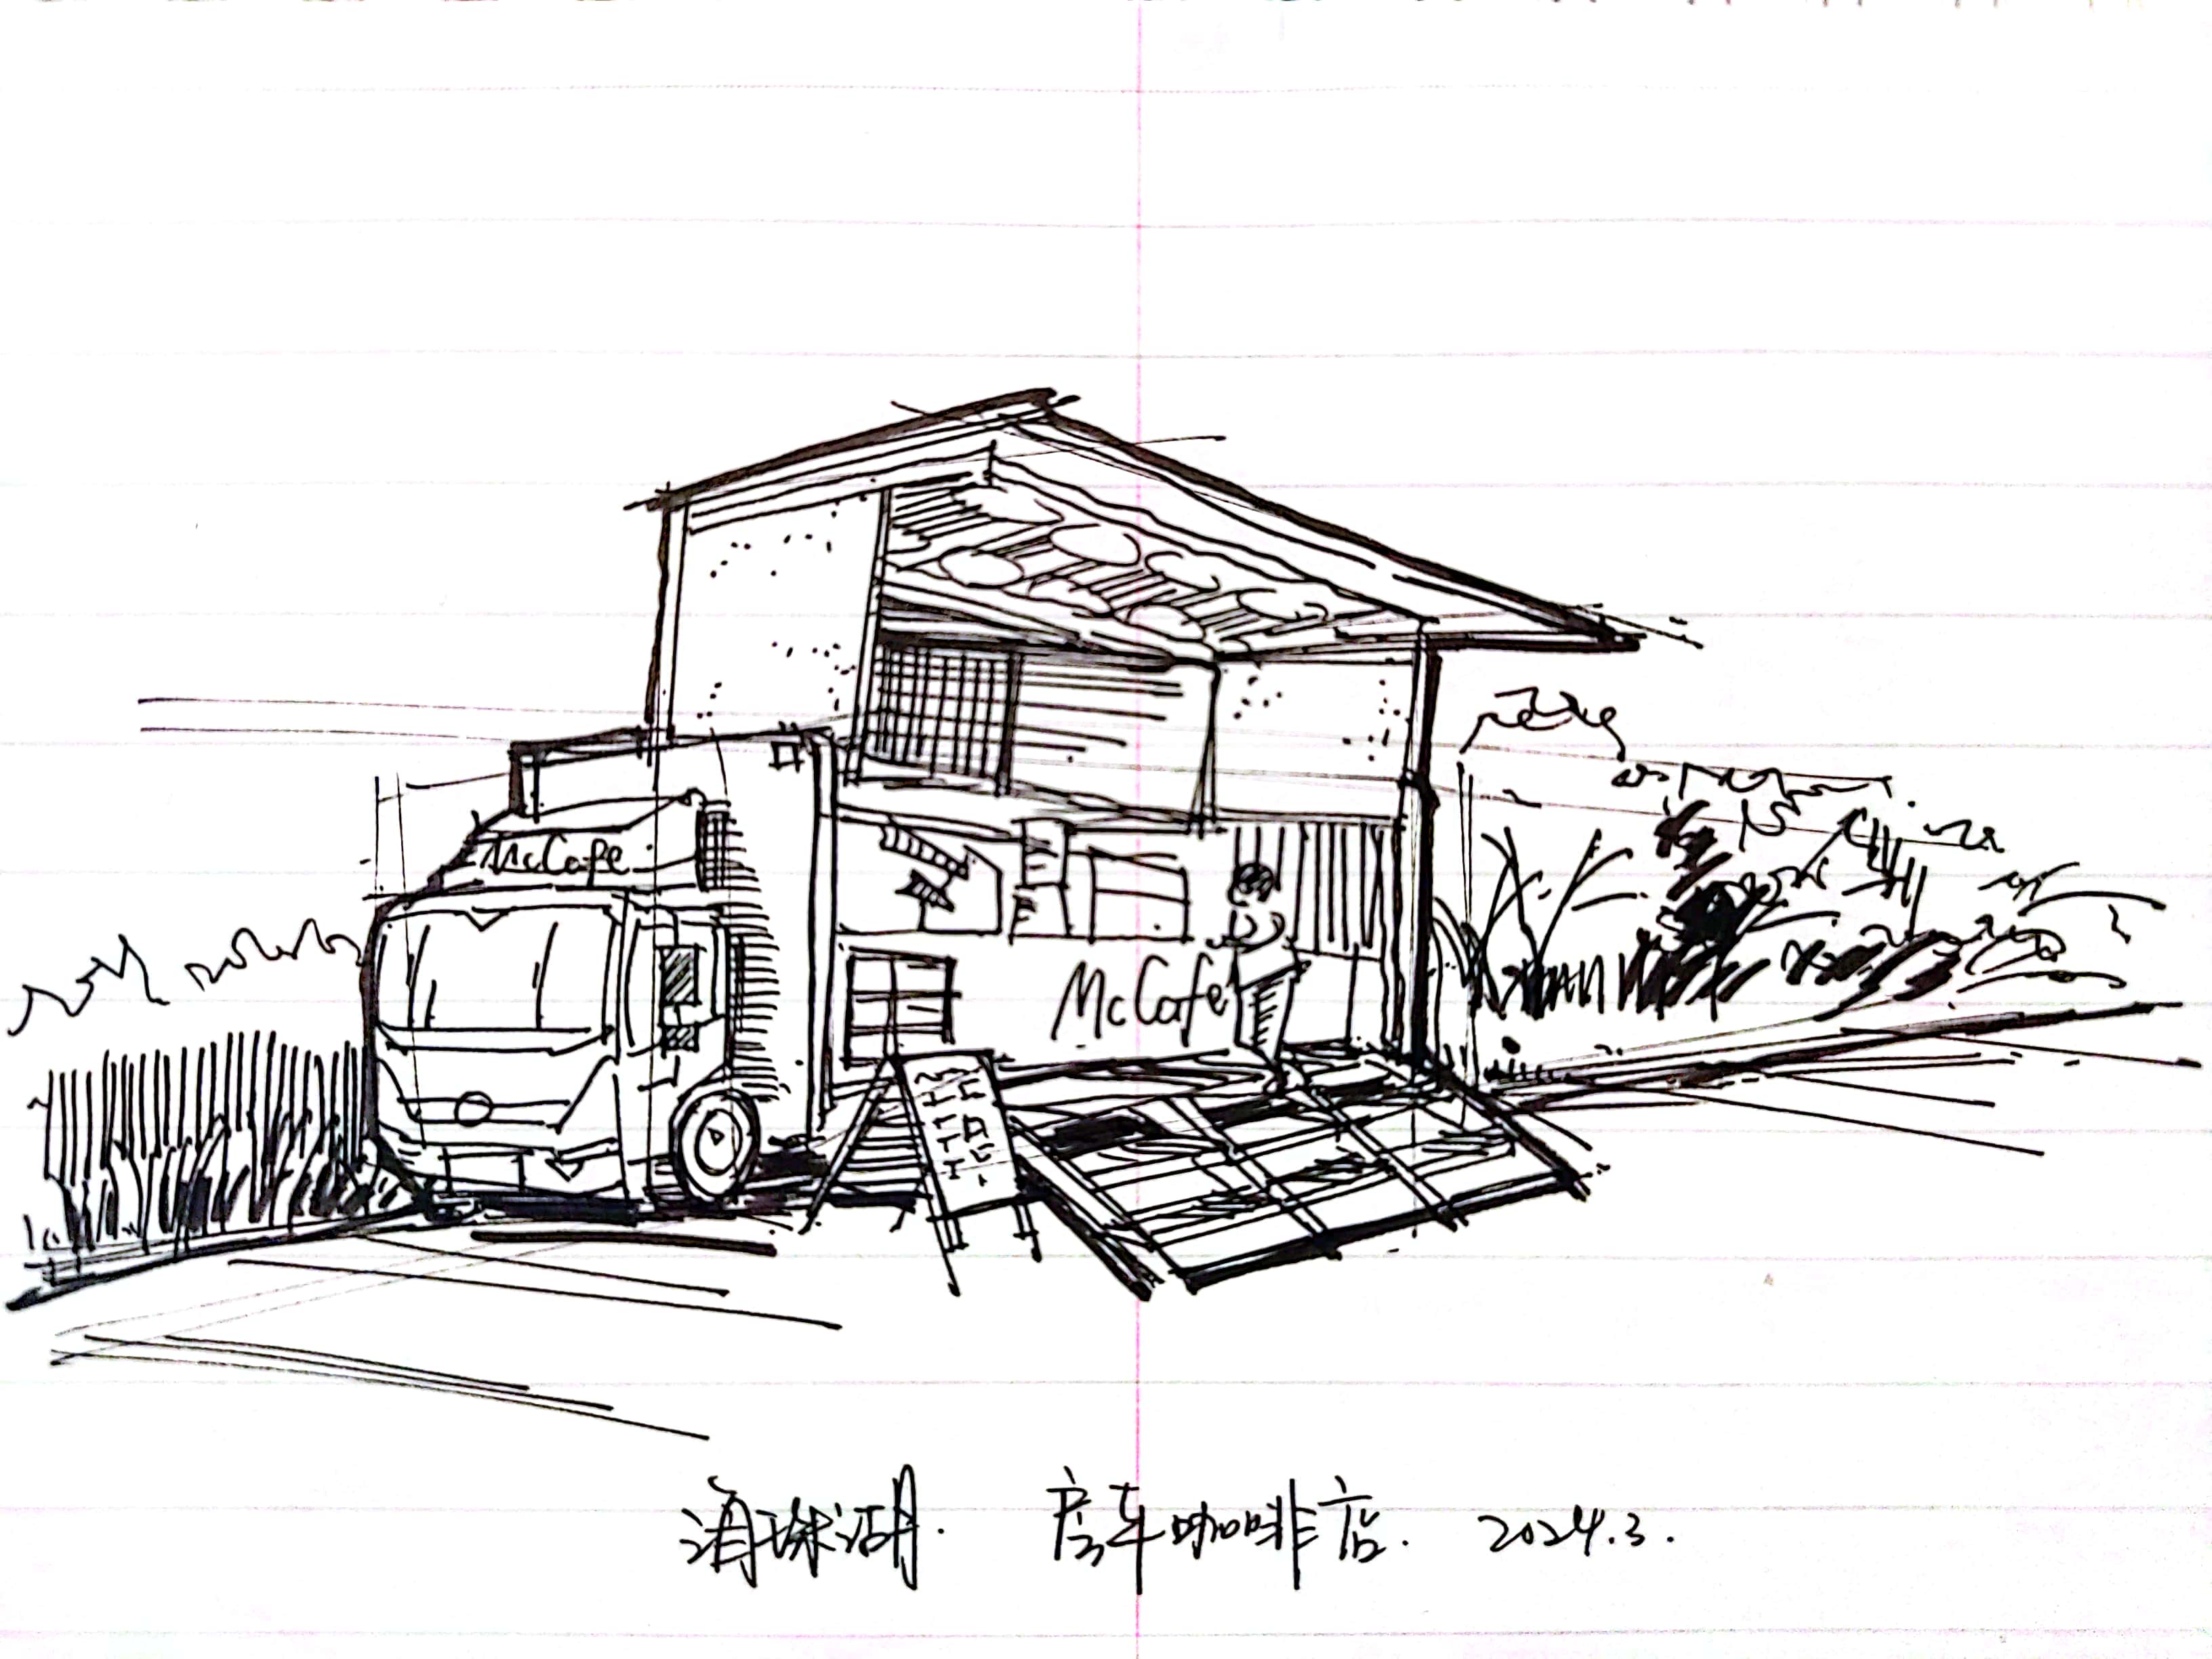 McCafe
McCafe
海珠湖. 房车咖啡店. 2024.3.